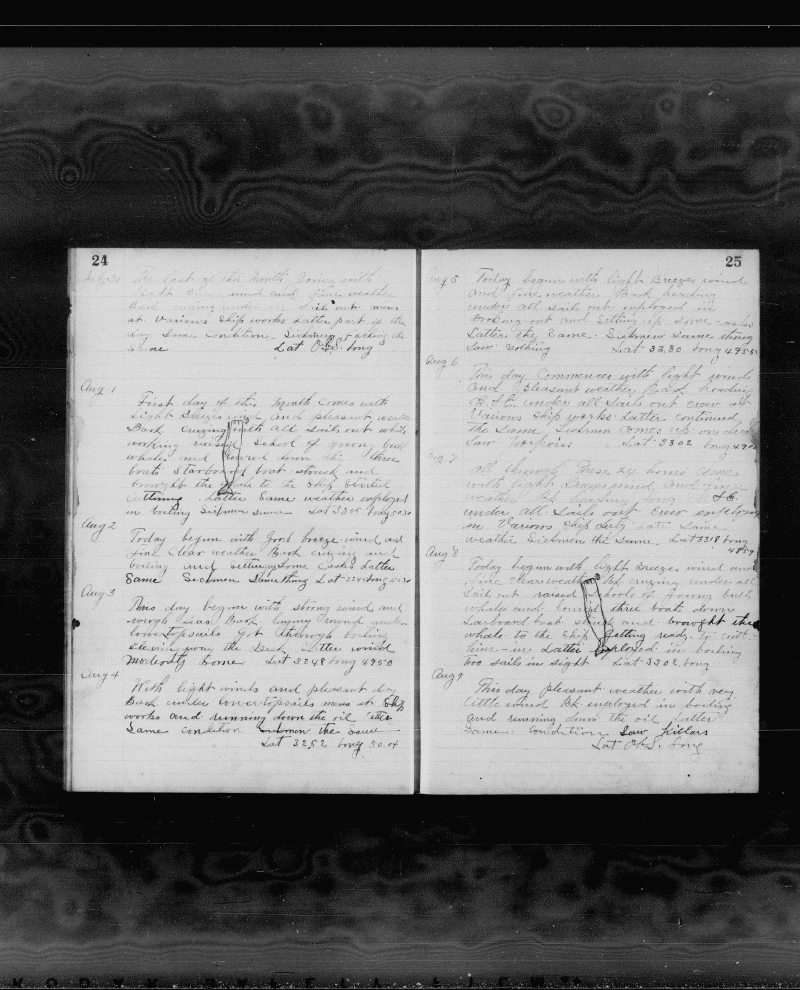 24
the last of this month going with
light wind and fine weather
Bark cruzing under sails out men
at Various Ship works Latter part of the
day Same Condition. Sickmen the
same Lat Obs. Long
Aug 1
First day of this month comes with
light Breezes wind and pleasant weather
Bark cruzing with all Sails out while
working raised School of young bull
whales and lowred down the three
boats Starboard boat struck and
brought the whale to the Ship Started
cutting. Latter Same weather employed
in boiling Sickmen same Lat 3305 Long 5030
Aug 2
Today begun with Good breeze wind and
fine Clear weather Bark cruzing and
boiling and setting Some Casks Latter
Same Sickmen Same thing Lat Long
Aug 3
This day begun with strong wind and
rough seas Bark laying round under
lowertopsails got through boiling
away the Latter wind
moderatly Some Lat 3248 Long 4950
Aug 4
With light winds and pleasant day
Bark under lowertopsails men at Ship
works and running down the oil latter
Same condition Sickmen the same
Lat 3252 Long 50.04
25
Aug 5
Today begun with light Breezes wind
and fine weather Bark heading
under all Sails out employed in
and Setting up some casks
Latter the Same. Sickmen Same thing
Saw nothing Lat 33.30 Long 4955
Aug 6
This day Commences with light winds
and pleasant weather Bark heading
under all Sails out crew at
Various Ship works. Latter continued
the Same Sickmen Comes up on deck
Saw porpoises Lat 3302 Long
Aug 7
all through these 24 hours Come
with light Breezes wind and fine
weather Bk heading
under all Sails out Crew employed
in Various Ship duty Latt Same
weather Sickmen the Same. Lat 3318 Long
4859
Aug 8
Today begun with light Breezes wind and
fine clear weather Bk cruzing under all
Sail out raised Schools of young bull
whales and lowred three boat down
Larboard boat struck and brought the
whale to the Ship Getting ready to cutt
him in Latter Employed in boiling
two sails in sight Lat 3302 Long
Aug 9
This day pleasant weather with very
little wind Bk employed in boiling
and running down the oil Latter
Same. Condition Saw Killers
Lat Obs. Long